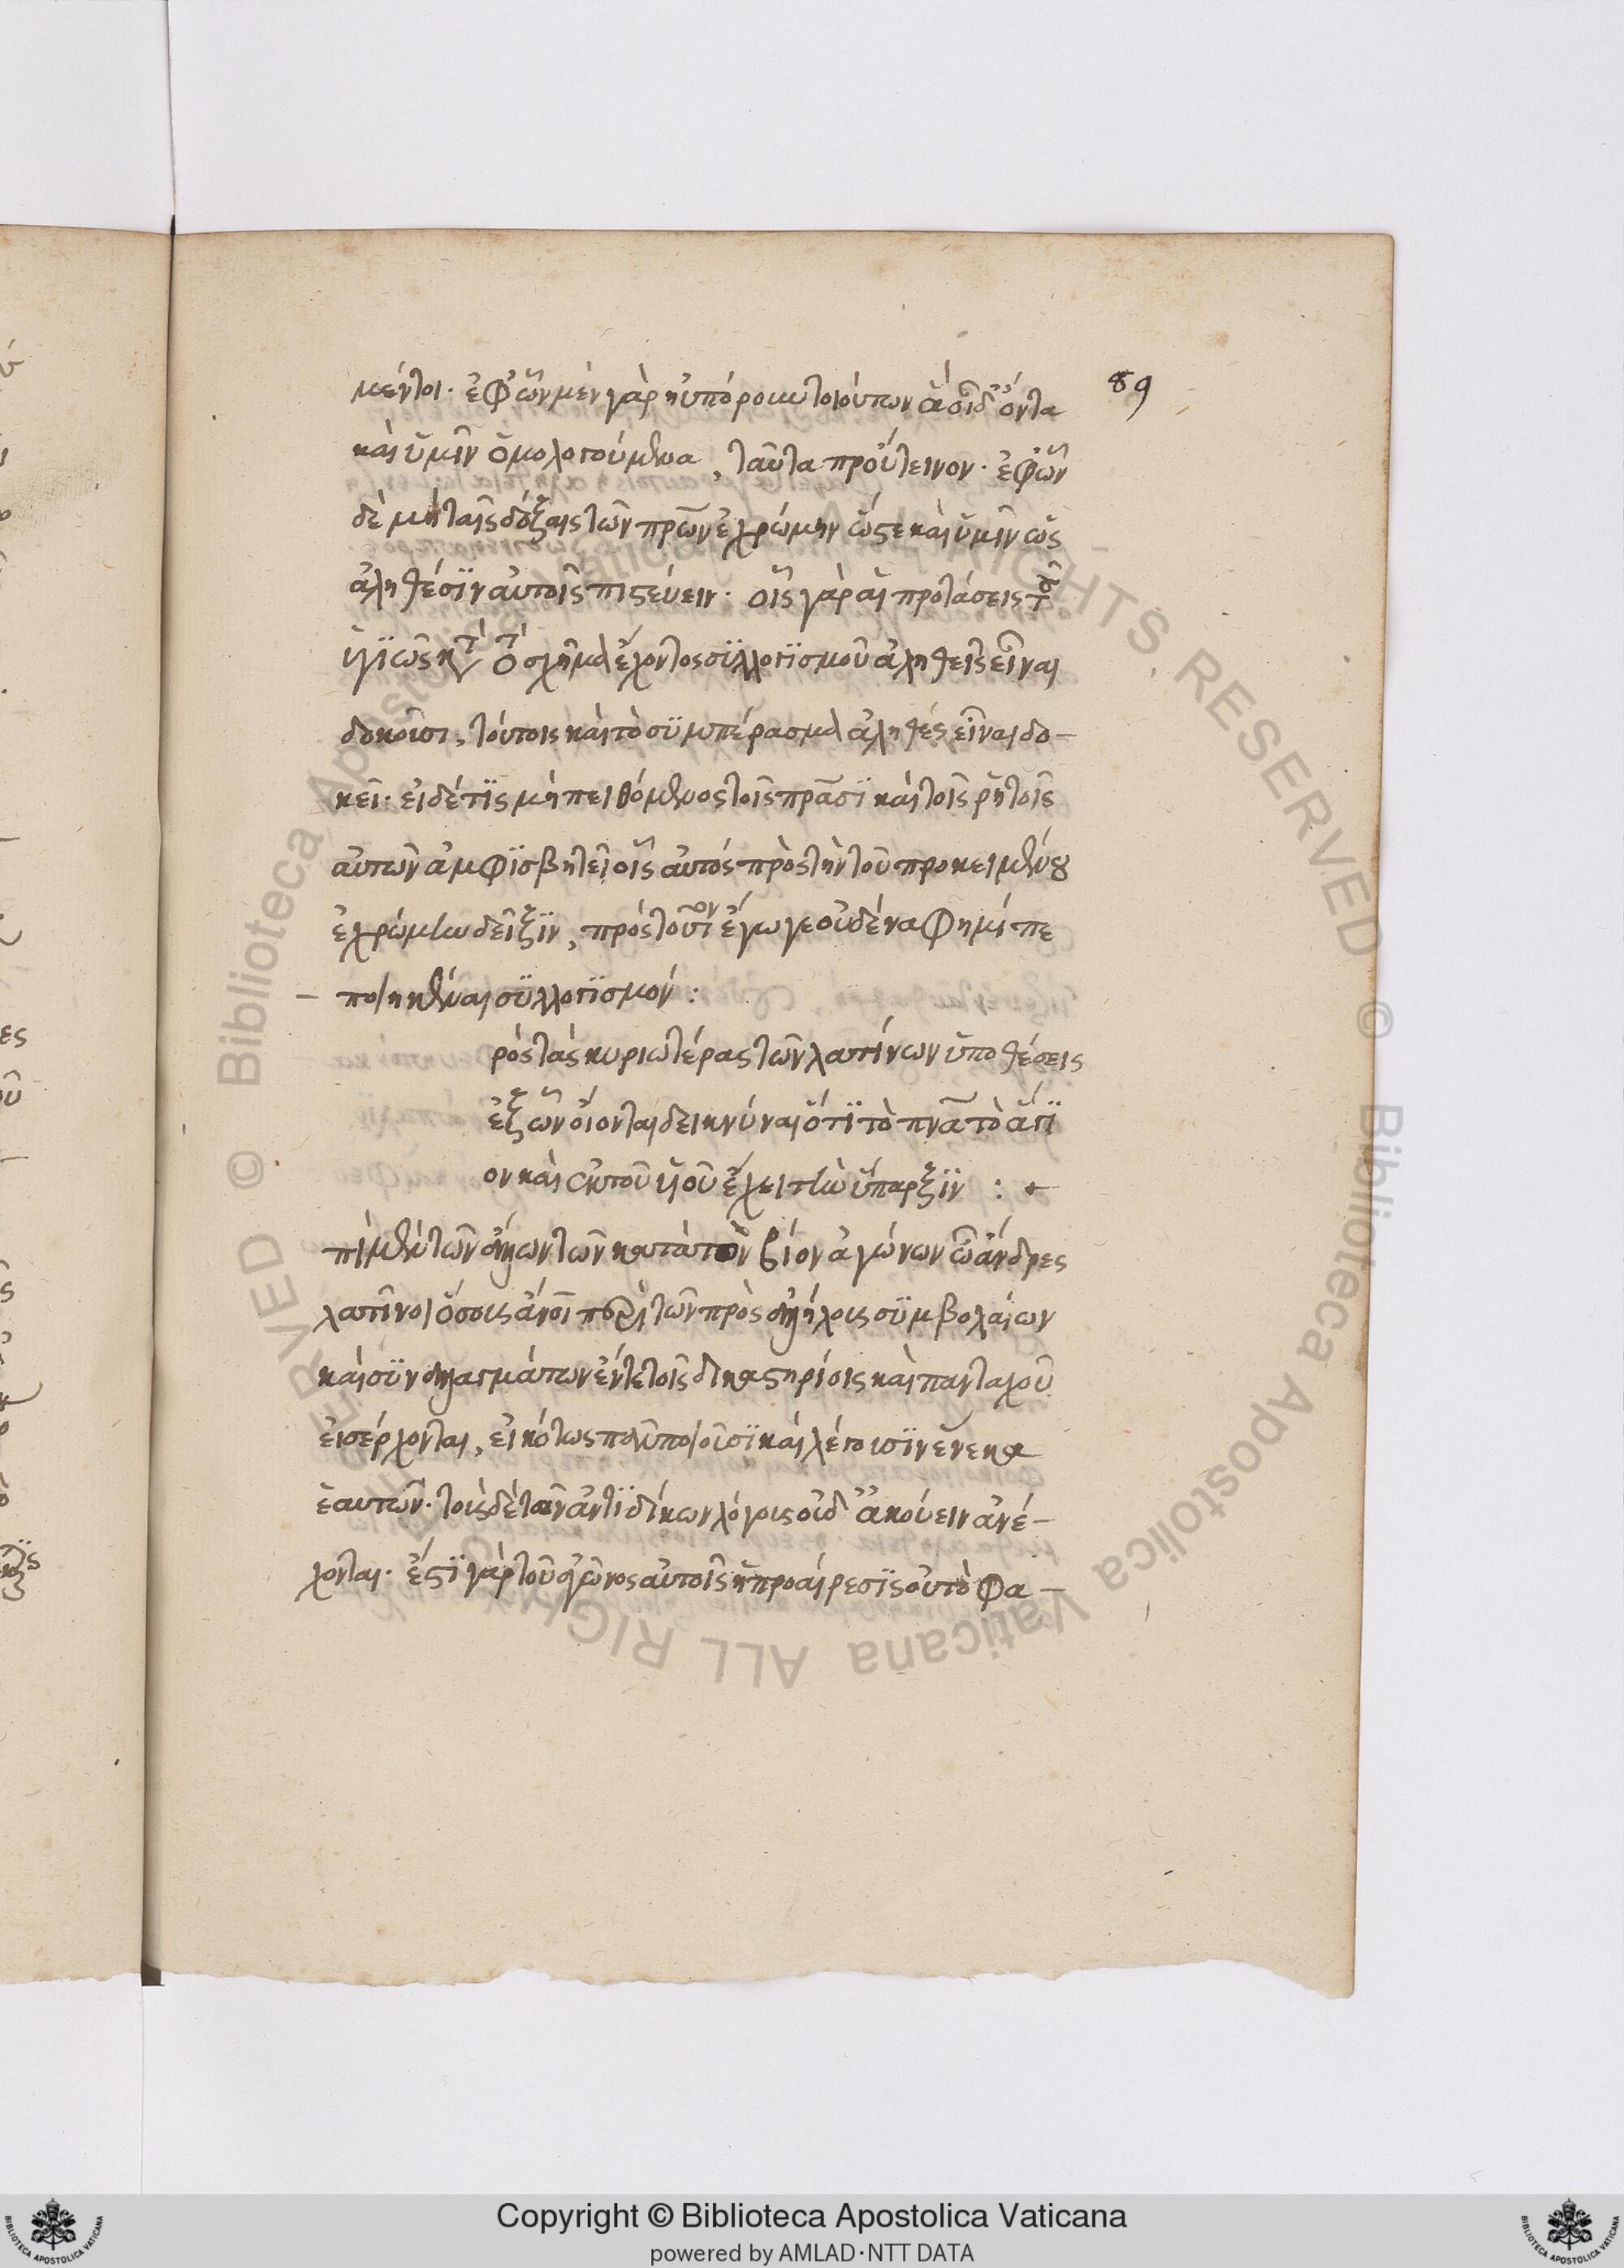 89
μέντοι· ἐφ' ὧν μὲν γὰρ ηὐπόρουν τοιούτων ἃ σιδ' ὄντα
καὶ ὑμῖν ὁμολογούμενα, ταῦτα προὔτεινον· ἐφ' ὧν
δὲ μὴ ταῖς δόξαις τῶν πρων ἐχρώμην ὥστε καὶ ὑμῖν ὡς
ἀληθέσιν αὐτοῖς πιστεύειν· οἷς γὰρ αἱ προτάσεις τοῦ
ὑγιῶς κτ τὸ σχῆμα ἔχοντος συλλογισμοῦ ἀληθεῖς εἶναι
δοκοῦσι, τούτοις καὶ τὸ συμπέρασμα ἀληθὲς εἶναι δο–
κεῖ· εἰ δέ τις μὴ πειθόμενος τοῖς πράσι καὶ τοῖς ῥητοῖς
αὐτῶν ἀμφισβητεῖ οἷς αὐτὸς πρὸς τὴν τοῦ προκειμένου
ἐχρώμην δεῖξιν, πρὸς τοῦτον ἔγωγε οὐδένα φημί πε
ποιηκέναι συλλογισμόν:
ρὸς τὰς κυριωτέρας τῶν λατίνων ὑποθέσεις
ἐξ ὧν οἴονται δεικνύναι ὅτι τὸ πνα τὸ ἅγι
ον καὶ ἐκ τοῦ υἱοῦ ἔχει τὴν ὕπαρξιν :
πὶ μὲν τῶν ἄλλων τῶν κατὰ τὸν βίον ἀγώνων ὦ ἄνδρες
λατῖνοι ὅσους ἄνοι περὶ τῶν πρὸς ἀλλήλους συμβολαίων
καὶ συναλλαγμάτων ἔν τε τοῖς δικαστηρίοις καὶ πανταχοῦ
εἰσέρχονται, εἰκότως πάντα ποιοῦσι καὶ λέγουσιν ἕνεκα
ἑαυτῶν· τοὺς δὲ τῶν ἀντιδίκων λόγους οὐδ' ἀκούειν ἀνέ–
χονται· ἔστι γὰρ τοῦ ἀγῶνος αὐτοῖς ἡ προαίρεσις οὐ τὸ φα–
Copyright © Biblioteca Apostolica Vaticana
powered by AMLAD·NTT DATA